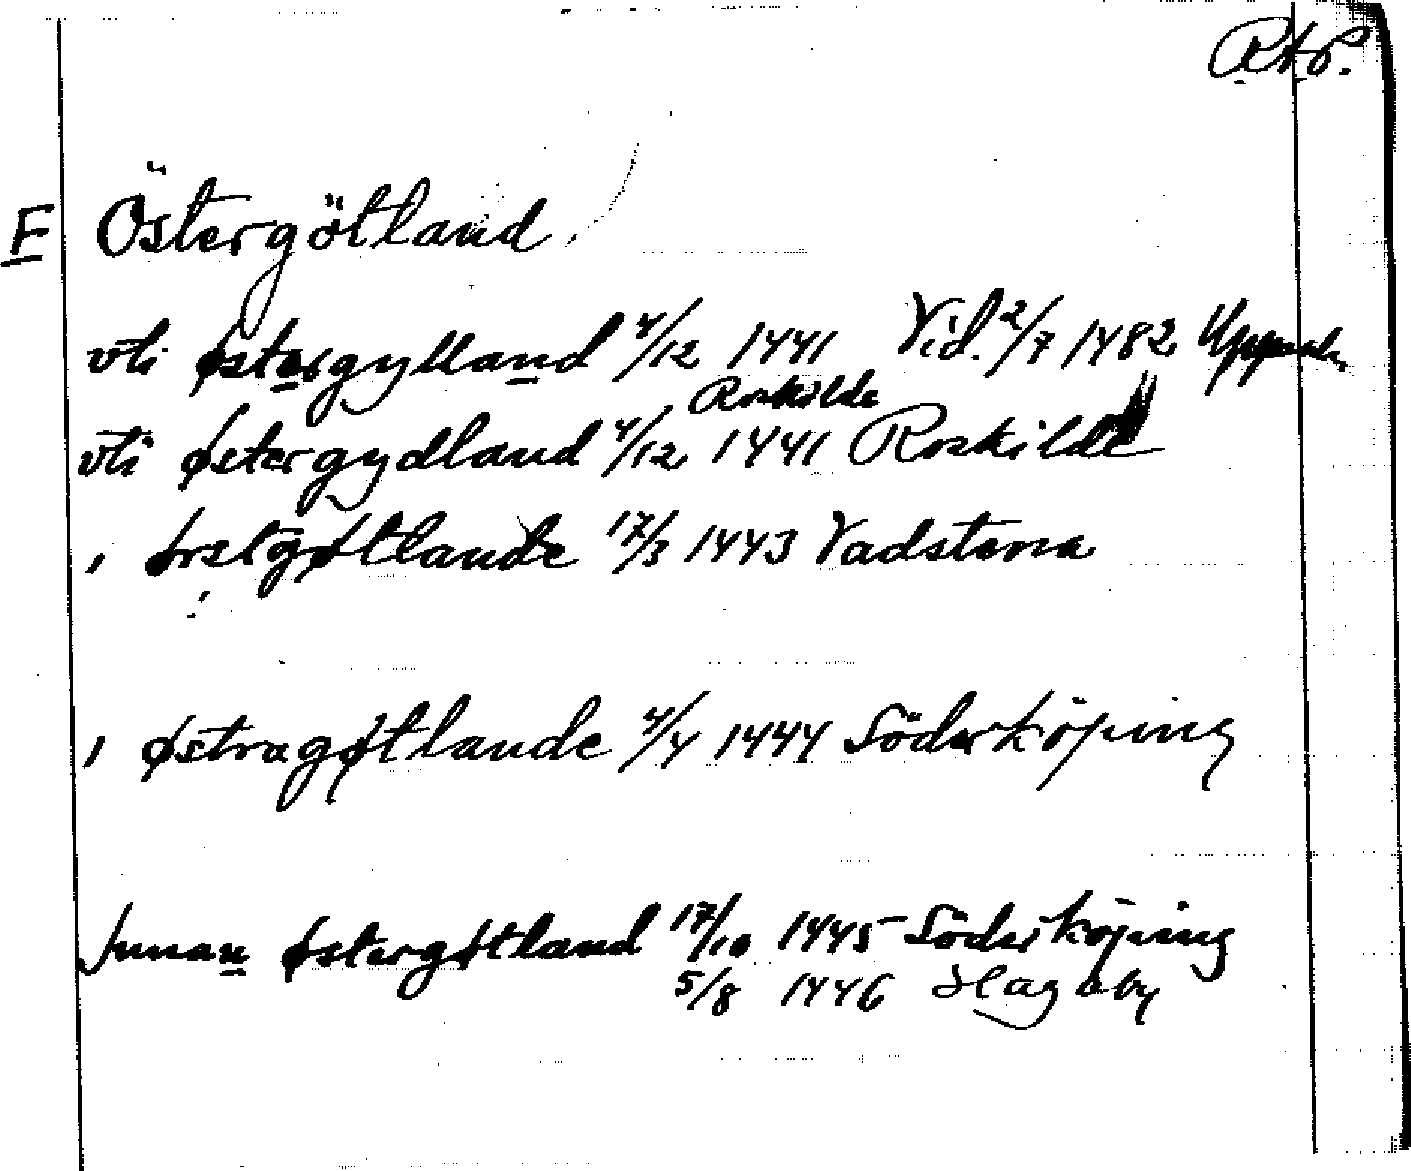 Rep.
E Östergötland.
vti østergylland 4/12 1441 Vid. 2/7 1482 Uppsala
Roskilde
vti østergydland 4/12 1441 Roskilde
i østgøtlande 17/3 1443 Vadstena
i østragøtlande 4/4 1444 Söderköping
Innan østergøtland 17/10 1445 Söderköping
5/8 1446 Hagaby